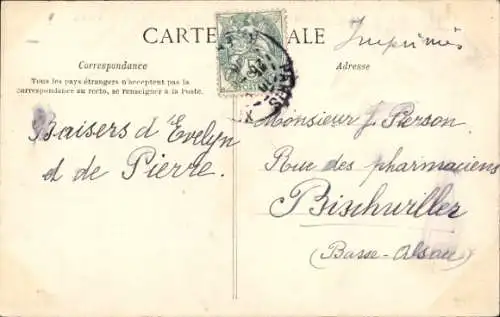 CARTE POSTALE
Imprimés
Correspondance
Tous les pays étrangers n'acceptent pas la
correspondance au recto, se renseigner à la Poste.
Adresse
PARIS
Baisers d'Evelyn
et de Pierre.
Monsieur J. Pierson.
Rue des pharmaciens
Bischwiller
(Basse-Alsace)